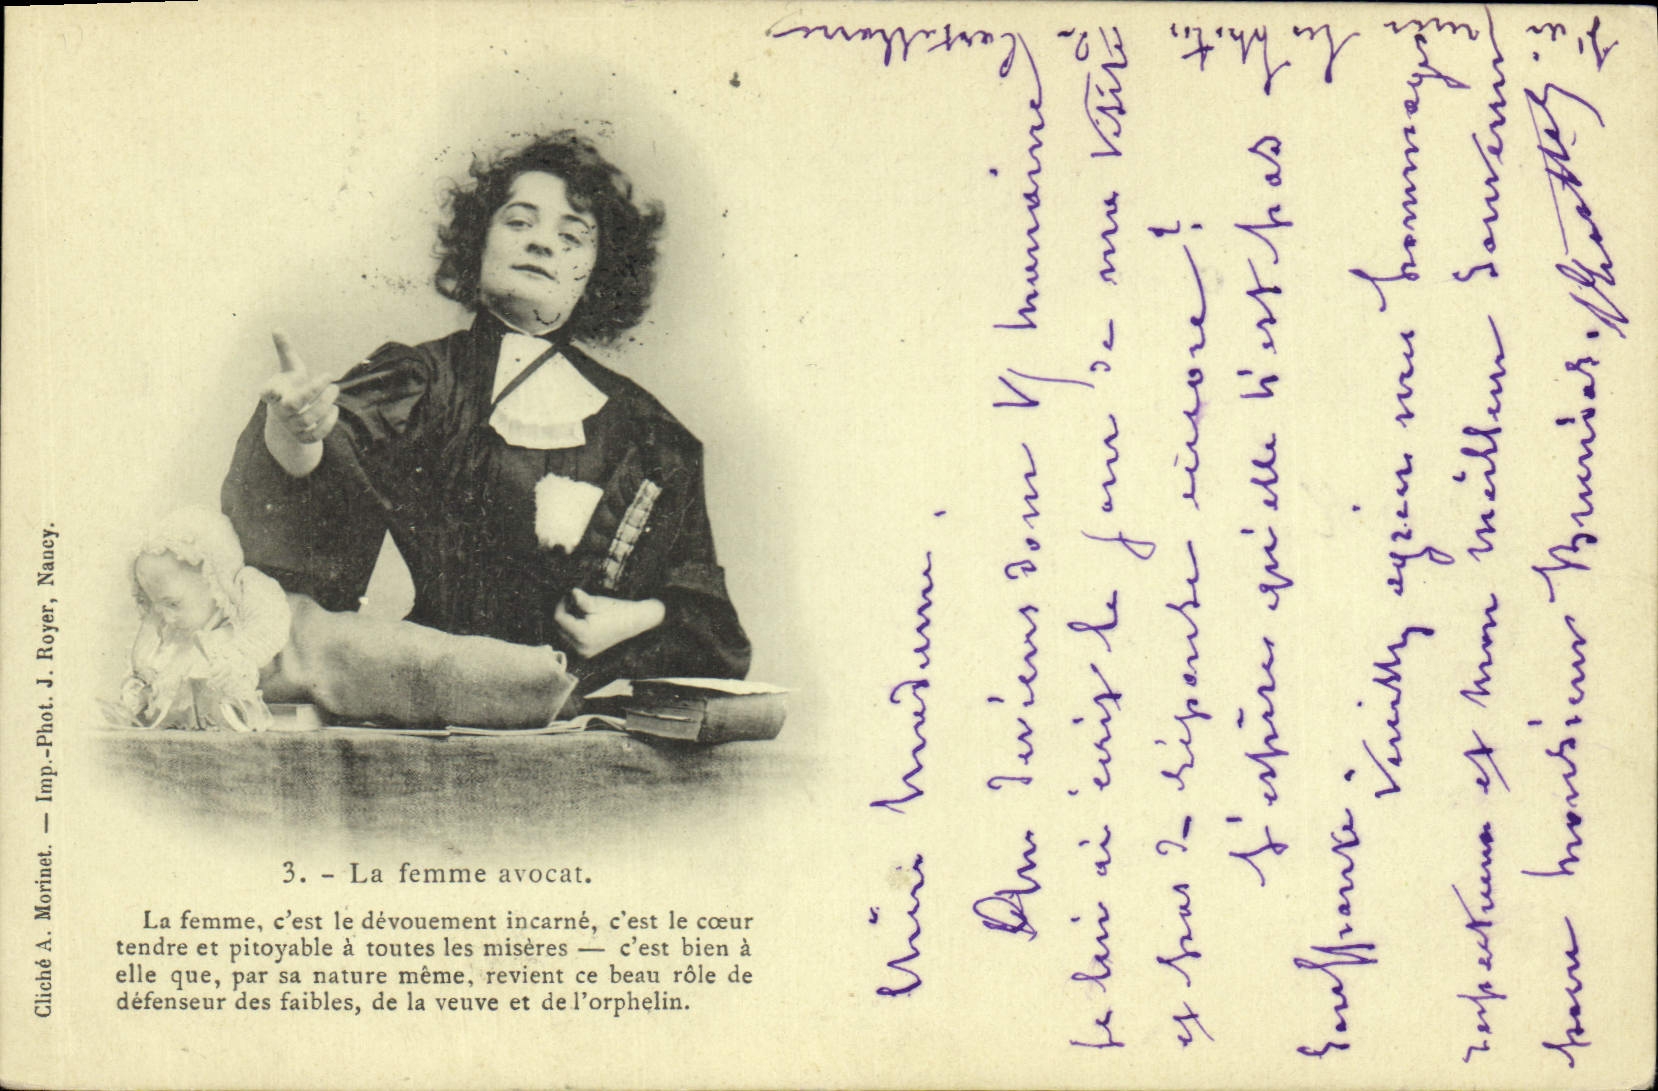 Cliché A. Morinet. — Imp.-Phot. J. Royer, Nancy.
3. - La femme avocat.
La femme, c'est le dévouement incarné, c'est le cœur
tendre et pitoyable à toutes les misères — c'est bien à
elle que, par sa nature même, revient ce beau rôle de
défenseur des faibles, de la veuve et de l'orphelin.
Chère Madame,
devient donc Germaine
je lui ai écrit le jour de ma visite
et pas de réponse encore!
J'espère qu'elle n'est pas
souffrante. Veuillez agréer mes hommages
respectueux et mon meilleur souvenir
pour monsieur
J'ai les photos